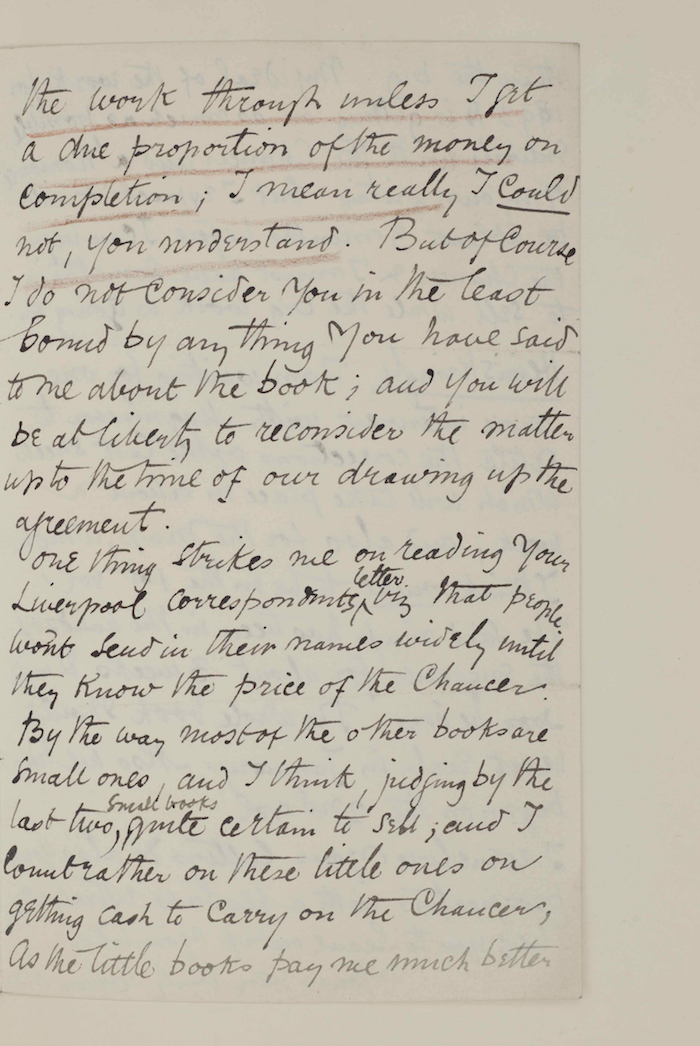 the work through unless I get
a due proportion of the money on
completion; I mean really I could
not, you understand. But of course
I do not consider you in the least
bound by anything you have said
to me about the book; and you will
be at liberty to reconsider the matter
up to the time of our drawing up the
agreement.
One thing strikes me on reading your
letter
Liverpool correspondents, viz that people
wont send in their names widely until
they know the price of the Chaucer.
By the way most of the other books are
small ones, and I think, judging by the
small books
last two, quite certain to sell; and I
count rather on these little ones on
getting cash to carry on the Chaucer,
As the little books pay me much better